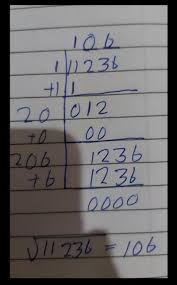 106
1 11236
+1 1
20 012
+0 00
206 1236
+6 1236
0000
√11236 = 106